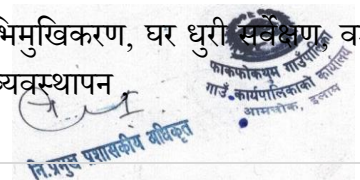 भिमुखिकरण, घर धुरी सर्वेक्षण,
व्यवस्थापन
फाकफोकथुम गाउँपालिका
गाउँ कार्यपालिकाको कार्यालय
आमचोक, इलाम
नि.प्रमुख प्रशासकीय अधिकृत